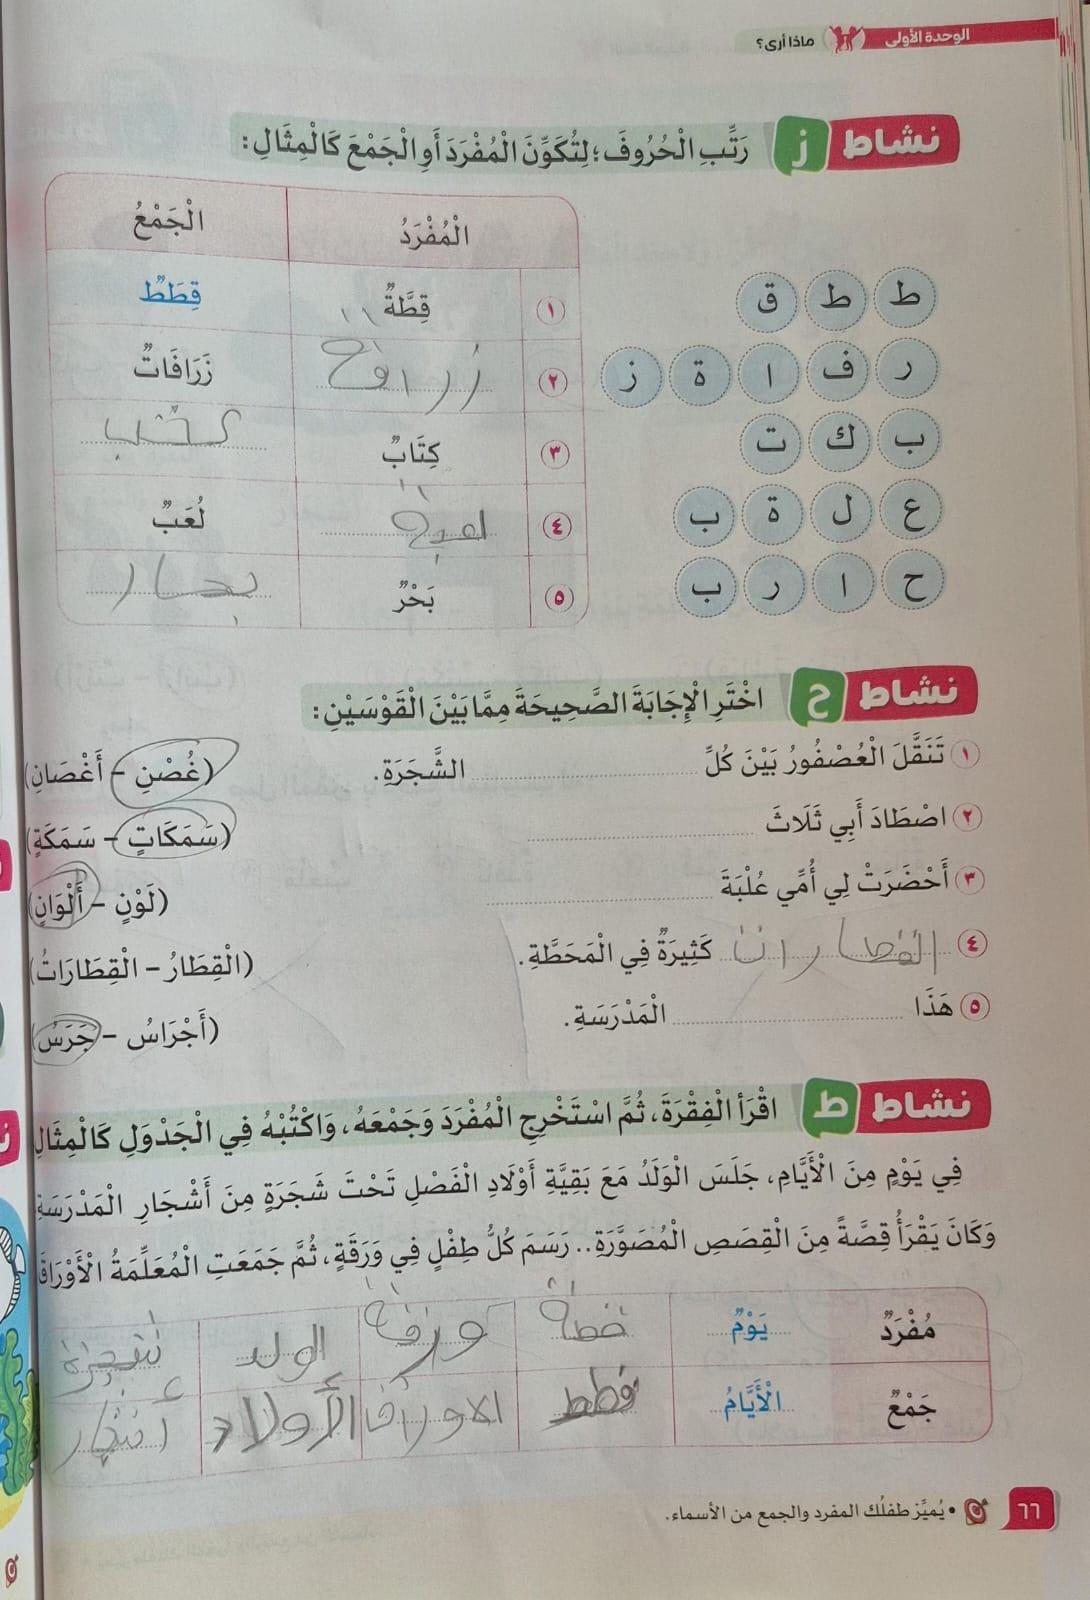 الوحدة الأولى ماذا أرى؟
نشاط ز رَتِّبِ الْحُرُوفَ؛ لِتُكَوِّنَ الْمُفْرَدَ أَوِ الْجَمْعَ كَالْمِثَالِ:
الْمُفْرَدُ الْجَمْعُ
ط ط ق ١ قِطَّةٌ قِطَطٌ
ر ف ا ة ز ٢ زرافة زَرَافَاتٌ
ب ك ت ٣ كِتَابٌ كتب
ع ل ة ب ٤ لعبة لُعَبٌ
ح ا ر ب ٥ بَحْرٌ بحار
نشاط ح اخْتَرِ الْإِجَابَةَ الصَّحِيحَةَ مِمَّا بَيْنَ الْقَوْسَيْنِ:
١ تَنَقَّلَ الْعُصْفُورُ بَيْنَ كُلِّ الشَّجَرَةِ. (غُصْنِ - أَغْصَانِ)
٢ اصْطَادَ أَبِي ثَلَاثَ (سَمَكَاتٍ - سَمَكَةٍ)
٣ أَحْضَرَتْ لِي أُمِّي عُلْبَةَ (لَوْنٍ - أَلْوَانٍ)
٤ القطارات كَثِيرَةٌ فِي الْمَحَطَّةِ. (الْقِطَارُ - الْقِطَارَاتُ)
٥ هَذَا الْمَدْرَسَةِ. (أَجْرَاسُ - جَرَسُ)
نشاط ط اقْرَأِ الْفِقْرَةَ، ثُمَّ اسْتَخْرِجِ الْمُفْرَدَ وَجَمْعَهُ، وَاكْتُبْهُ فِي الْجَدْوَلِ كَالْمِثَالِ
فِي يَوْمٍ مِنَ الْأَيَّامِ، جَلَسَ الْوَلَدُ مَعَ بَقِيَّةِ أَوْلَادِ الْفَصْلِ تَحْتَ شَجَرَةٍ مِنَ أَشْجَارِ الْمَدْرَسَةِ
وَكَانَ يَقْرَأُ قِصَّةً مِنَ الْقِصَصِ الْمُصَوَّرَةِ.. رَسَمَ كُلُّ طِفْلٍ فِي وَرَقَةٍ، ثُمَّ جَمَعَتِ الْمُعَلِّمَةُ الْأَوْرَاقَ
مُفْرَدٌ يَوْمٌ ورقة الولد شجرة
جَمْعٌ الْأَيَّامُ قطط الاوراق الأولاد أشجار
٦٦ • يُميِّز طفلُك المفرد والجمع من الأسماء.